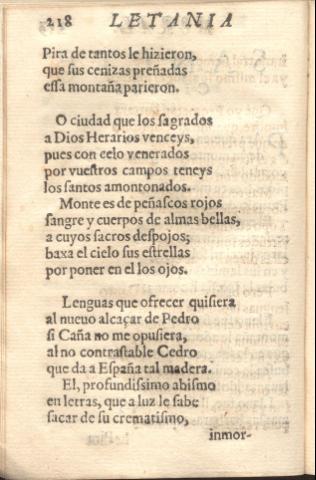 218 LETANIA
Pira de tantos le hizieron,
que sus cenizas preñadas
essa montaña parieron.
O ciudad que los sagrados
a Dios Herarios venceys,
pues con celo venerados
por vuestros campos teneys
los santos amontonados.
Monte es de peñascos rojos
sangre y cuerpos de almas bellas,
a cuyos sacros despojos;
baxa el cielo sus estrellas
por poner en el los ojos.
Lenguas que ofrecer quisiera
al nueuo alcaçar de Pedro
si Caña no me opusiera,
al no contrastable Cedro
que da a España tal madera.
El, profundissimo abismo
en letras, que a luz le sabe
sacar de su crematismo,
inmor-